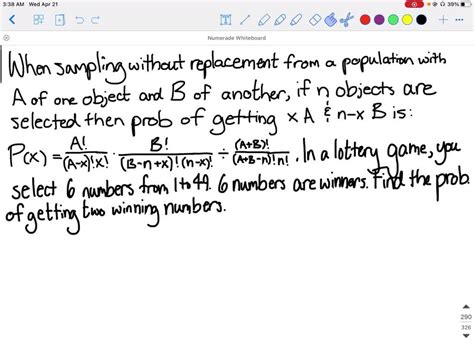 3:38 AM Wed Apr 21
39%
Numerade Whiteboard
When sampling without replacement from a population with
A of one object and B of another, if n objects are
selected then prob of getting x A & n-x B is:
P(x) = A!/(A-x)!x! · B!/(B-n+x)!(n-x)! ÷ (A+B)!/(A+B-n)!n! . In a lottery game, you
select 6 numbers from 1 to 49. 6 numbers are winners. Find the prob
of getting two winning numbers.
290
326